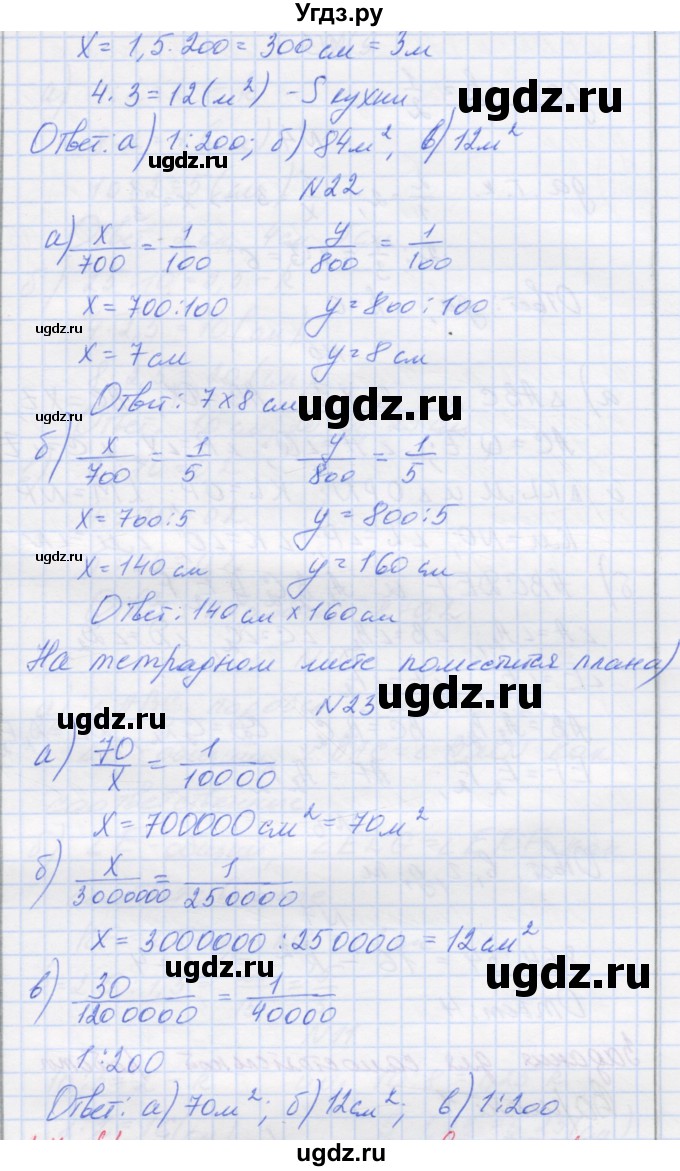 Угдз.ру
x = 1,5 · 200 = 300 см = 3 м
4 · 3 = 12 (м²) – S кухни
Ответ: а) 1:200; б) 84 м², в) 12 м²
ugdz.ru
N22
а) x/700 = 1/100 y/800 = 1/100
ugdz.ru
x = 700:100 y = 800:100
ugdz.ru
x = 7 см y = 8 см
Ответ: 7 x 8 см
ugdz.ru ugdz.ru
б) x/700 = 1/5 y/800 = 1/5
x = 700:5 y = 800:5
ugdz.ru
x = 140 см y = 160 см
Ответ: 140 см x 160 см
На тетрадном листе поместится план а)
ugdz.ru ugdz.ru
N23
а) 70/x = 1/10000
x = 700000 см² = 70 м²
ugdz.ru
б) x/3000000 = 1/250000
x = 3000000 : 250000 = 12 см²
ugdz.ru ugdz.ru
в) 30/1200000 = 1/40000
1:200
Ответ: а) 70 м²; б) 12 см²; в) 1:200
ugdz.ru